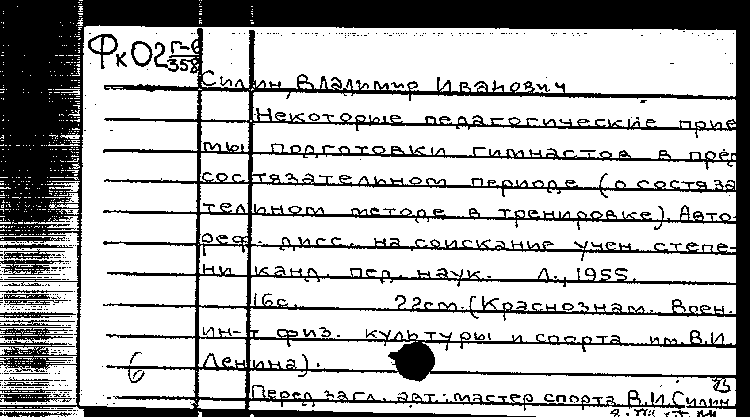 Фк02 Г-6
358
Силин, Владимир Иванович
Некоторые педагогические прие
мы подготовки гимнастов в пред
состязательном периоде (о состяза
тельном методе в тренировке). Авто-
реф. дисс. на соискание учен. степе-
ни канд. пед. наук. Л., 1955.
16с. 22см. (Краснознам. Воен.
ин-т физ. культуры и спорта им. В.И.
Ленина).
6
Перед загл. авт.: мастер спорта В.И. Силин